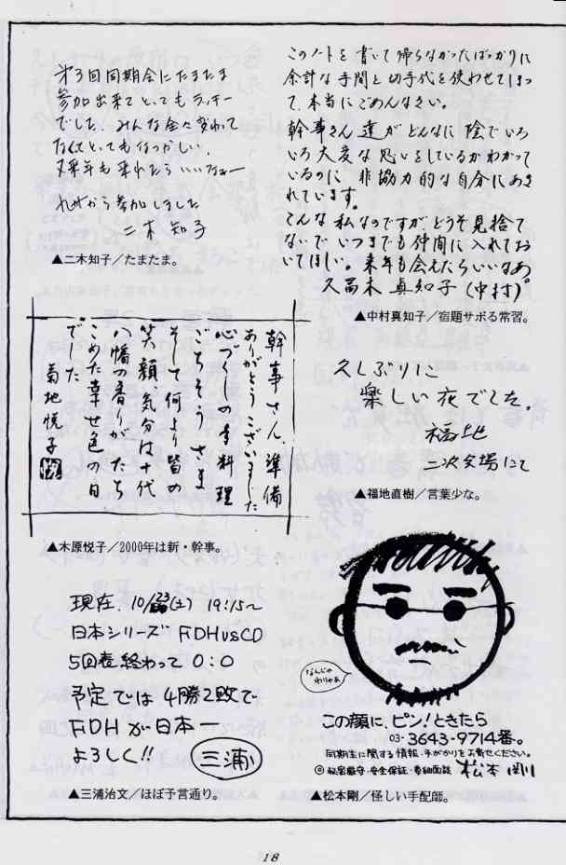 才3回同期会にたまたま
参加出来てとってもラッキー
でした。みんな全然変わって
なくてとってもなつかしい。
又来年も来れたらいいなァー
札幌から参加しました
二木知子
▲二木知子／たまたま。
このノートを書いて帰らなかったばっかりに
余計な手間と切手代を使わせてしまっ
て、本当にごめんなさい。
幹事さん達がどんなに陰でいろ
いろ大変な思いをしているかわかって
いるのに、非協力的な自分にあき
れています。
こんな私なのですが、どうぞ見捨て
ないでいつまでも仲間に入れてお
いてほしい。来年も会えたらいいなあ。
久富木真知子（中村）
▲中村真知子／宿題サボる常習。
幹事さん、準備
ありがとうございました
心づくしの手料理
ごちそうさま
そして何より皆の
笑顔、気分は十代
八幡の香りがたち
こめた幸せ色の日
でした
菊地悦子
▲木原悦子／2000年は新・幹事。
久しぶりに
楽しい夜でした。
福地
二次会場にて
▲福地直樹／言葉少な。
現在、10/23(土) 19:15～
日本シリーズ FDH vs CD
5回表終わって 0:0
予定では 4勝2敗で
FDHが日本一
よろしく!!
三浦
▲三浦治文／ほぼ予言通り。
なんじゃ
わりゃあ
この顔に、ピン！ときたら
03-3643-9714番。
同期生に関する情報・手がかりをお寄せください。
◎秘密厳守・安全保証・委細面談
松本
▲松本剛／怪しい手配師。
18